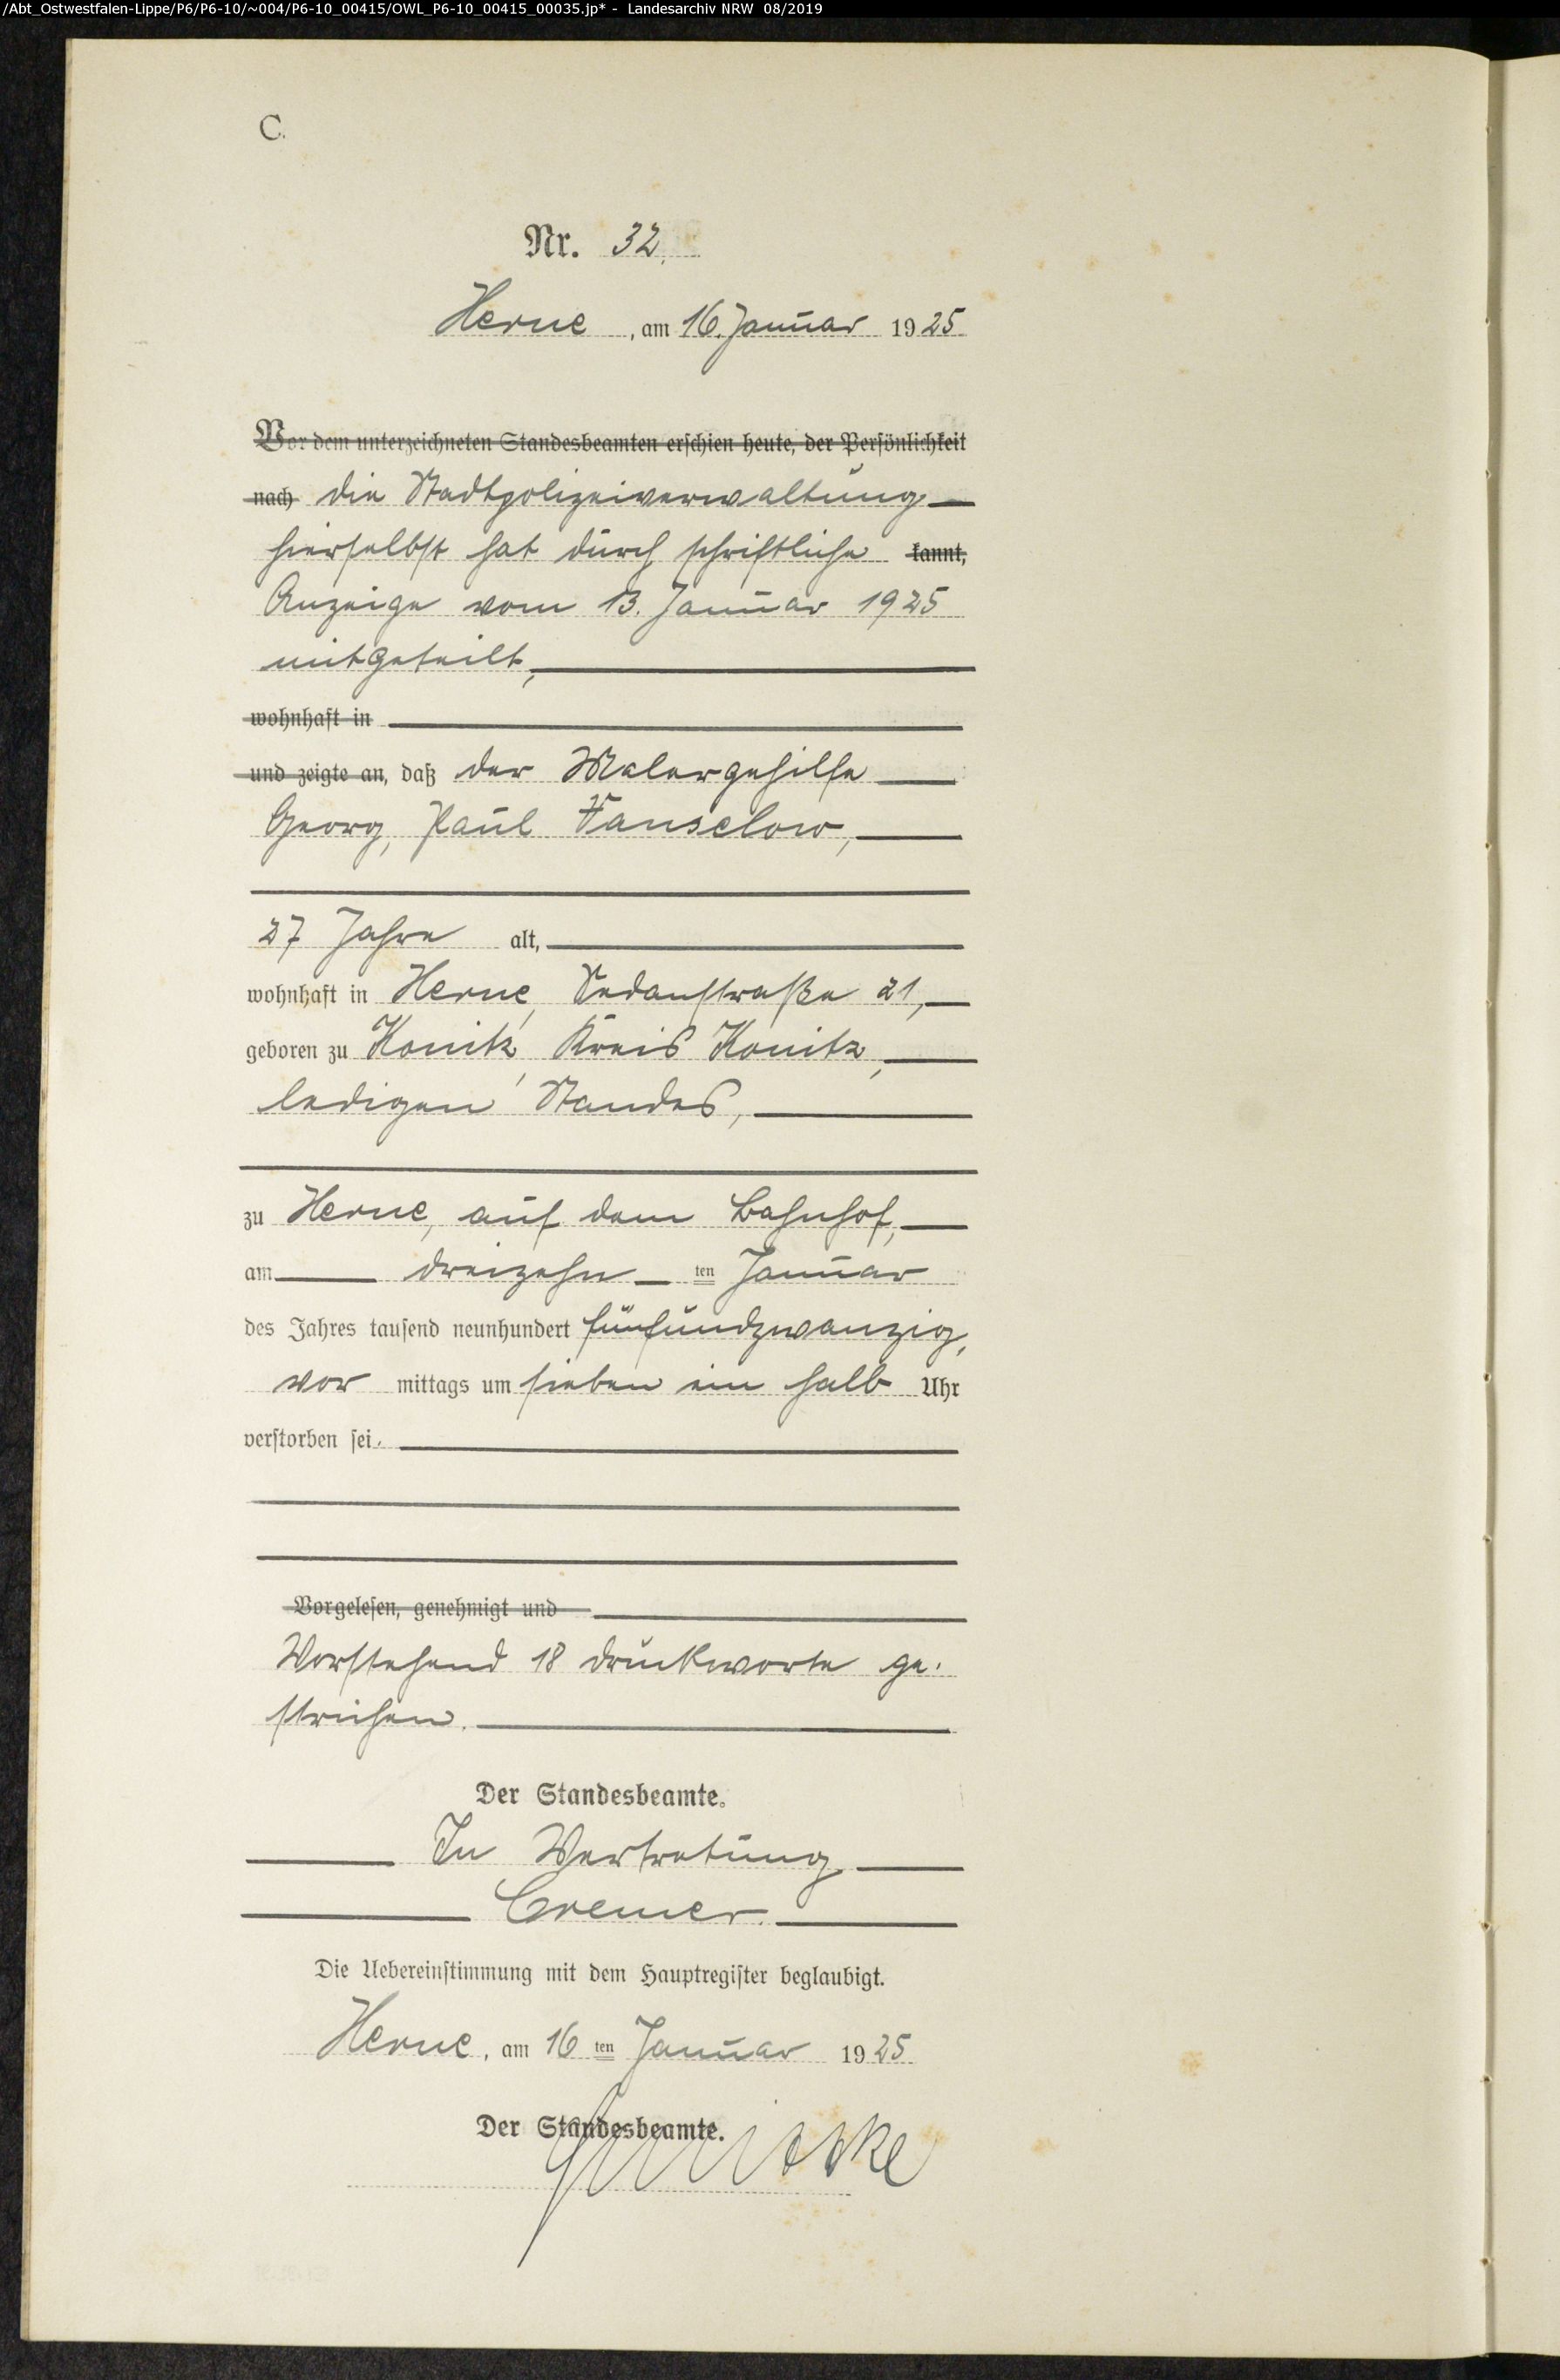 /Abt_Ostwestfalen-Lippe/P6/P6-10/~004/P6-10_00415/OWL_P6-10_00415_00035.jp* - Landesarchiv NRW 08/2019
C.
Nr. 32.
Herne, am 16. Januar 1925
Vor dem unterzeichneten Standesbeamten erschien heute, der Persönlichkeit
nach die Stadtpolizeiverwaltung
hierselbst hat durch schriftliche kannt,
Anzeige vom 13. Januar 1925
mitgeteilt,
wohnhaft in
und zeigte an, daß der Malergehilfe
Georg, Paul Fanselow,
27 Jahre alt,
wohnhaft in Herne, Sedanstraße 21,
geboren zu Konitz, Kreis Konitz,
ledigen Standes,
zu Herne, auf dem Bahnhof,
am dreizehn ten Januar
des Jahres tausend neunhundert fünfundzwanzig,
vor mittags um sieben ein halb Uhr
verstorben sei.
Vorgelesen, genehmigt und
Vorstehend 18 Druckworte ge-
strichen.
Der Standesbeamte.
In Vertretung
Cremer.
Die Uebereinstimmung mit dem Hauptregister beglaubigt.
Herne, am 16 ten Januar 1925.
Der Standesbeamte.